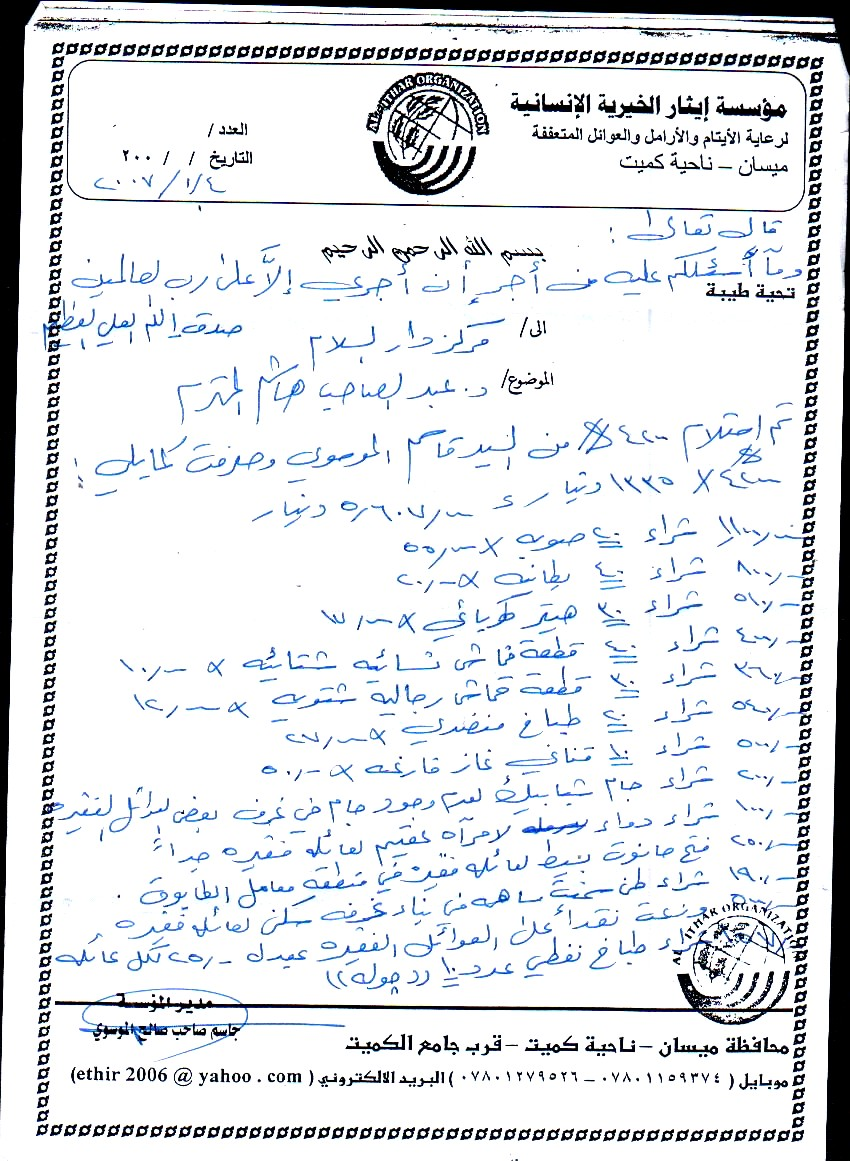 مؤسسة إيثار الخيرية الإنسانية
لرعاية الأيتام والأرامل والعوائل المتعففة
ميسان – ناحية كميت
AL-ITHAR ORGANIZATION
العدد /
التاريخ / / ٢٠٠
٢٠٠٧/١/٤
قال تعالى :
بسم الله الرحمن الرحيم
وما أسئلكم عليه من أجر إن أجري إلا على رب العالمين
تحية طيبة
صدق الله العلي العظيم
الى / مركز دار السلام
الموضوع / د. عبد الصاحب هاشم المحترم
تم استلام ٤٢٠٠ $ من السيد قاسم الموسوي وصرفت كمايلي :
$ ٤٢٠٠ × ١٣٣٥ دينار = ٥٬٦٠٧٬٠٠٠ دينار
١١٠٠٬ شراء ٢٠ صوبه × ٥٥٬٠٠٠
٨٠٠٬ شراء ٤٠ بطانيه × ٢٠٬٠٠٠
٥١٠٬ شراء ٣٠ هيتر كهربائي × ١٧٬٠٠٠
٤٠٠٬ شراء ٤٠ قطعة قماش نسائيه شتائيه × ١٠٬٠٠٠
٣٦٠٬ شراء ٣٠ قطعة قماش رجاليه شتويه × ١٢٬٠٠٠
٥٤٠٬ شراء ٢٠ طباخ منضدي × ٢٧٬٠٠٠
٥٠٠٬ شراء ١٠ قناني غاز فارغه × ٥٠٬٠٠٠
٢٠٠٬ شراء جام شبابيك لعدم وجود جام في غرف بعض العوائل الفقيره
١٠٠٬ شراء دواء لامرأه عقيم لعائله فقيره جداً
٢٥٠٬ فتح حانوت بسيط لعائله فقيره في منطقة معامل الطابوق
١٩٠٬ شراء طن سمنت مساهمه في بناء غرفه سكن لعائله فقيره
وزعت نقداً على العوائل الفقيره بمعدل ٢٥٬ لكل عائله
شراء طباخ نفطي عدد ١٠
AL-ITHAR ORGANIZATION
مدير المؤسسة
جاسم صاحب صالح الموسوي
محافظة ميسان – ناحية كميت – قرب جامع الكميت
موبايل ( ٠٧٨٠١١٥٩٣٧٤ – ٠٧٨٠١٢٧٩٥٢٦ ) البريد الالكتروني ( ethir 2006 @ yahoo . com)